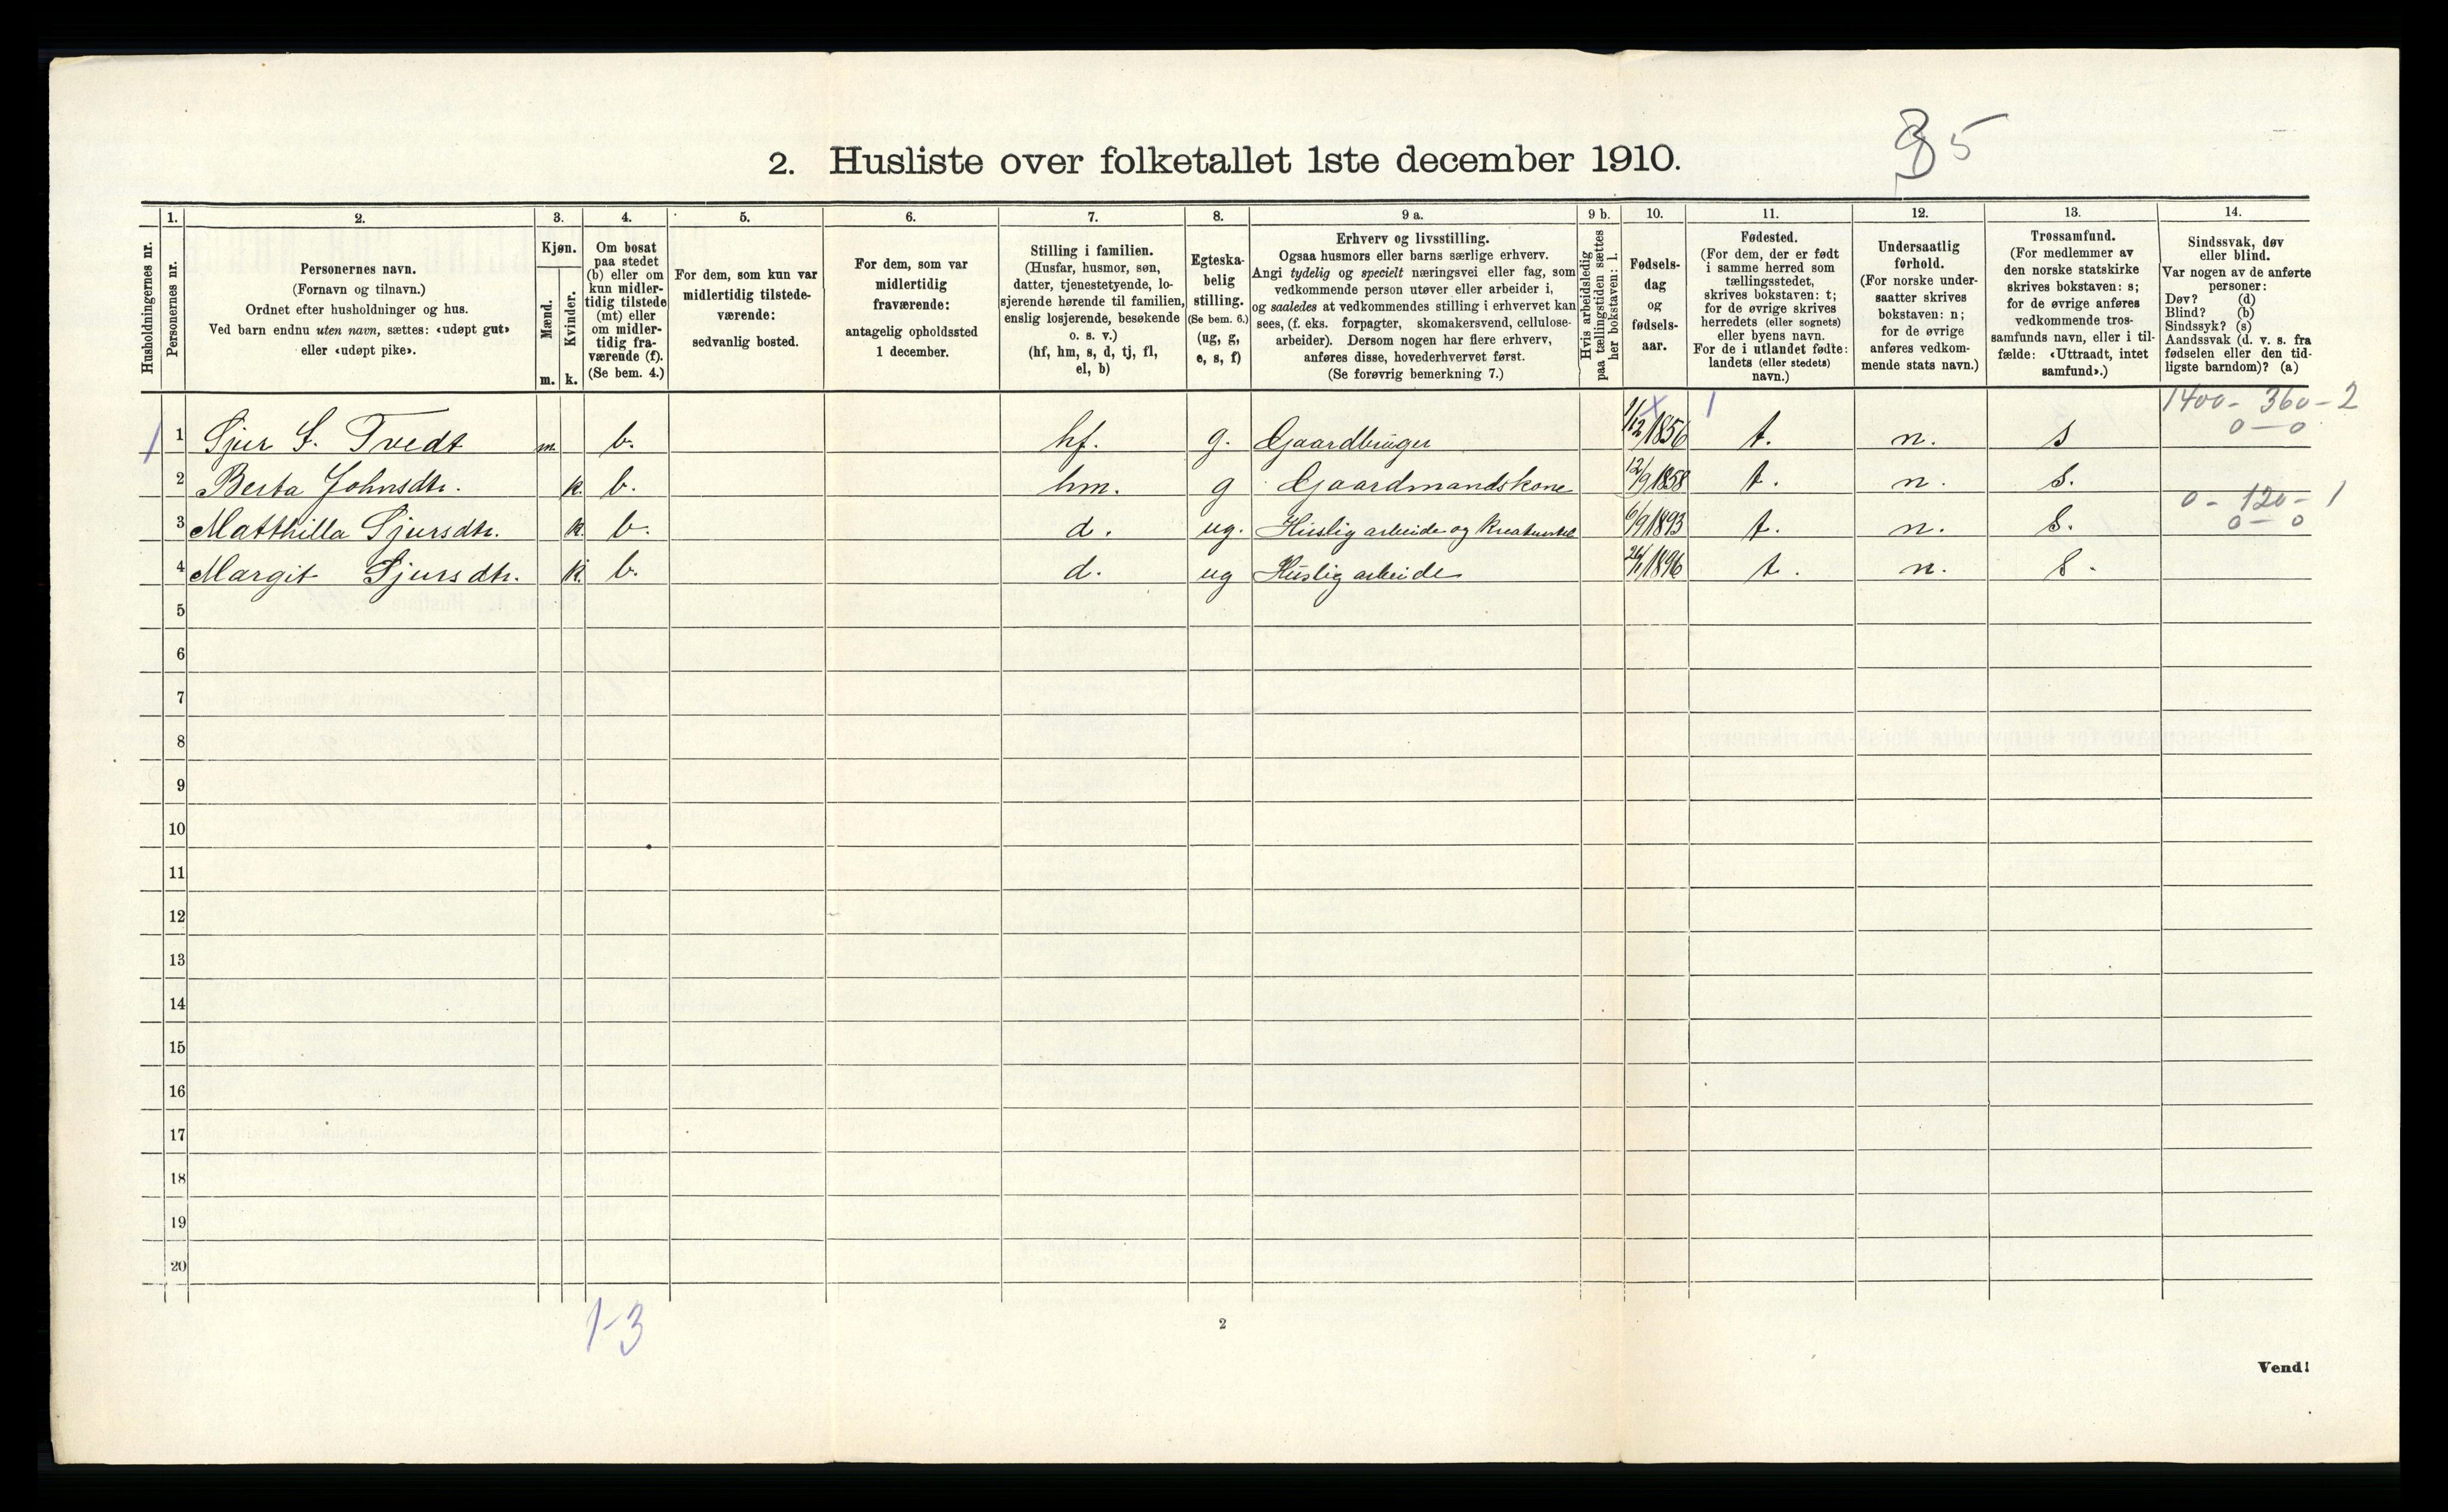 2. Husliste over folketallet 1ste december 1910.
85
Husholdningernes nr.
1.
Personernes nr.
2.
Personernes navn.
(Fornavn og tilnavn.)
Ordnet efter husholdninger og hus.
Ved barn endnu uten navn, sættes: «udøpt gut»
eller «udøpt pike».
3.
Kjøn.
Mænd.
Kvinder.
m. k.
4.
Om bosat
paa stedet
(b) eller om
kun midler-
tidig tilstede
(mt) eller
om midler-
tidig fra-
værende (f).
(Se bem. 4.)
5.
For dem, som kun var
midlertidig tilstede-
værende:
sedvanlig bosted.
6.
For dem, som var
midlertidig
fraværende:
antagelig opholdssted
1 december.
7.
Stilling i familien.
(Husfar, husmor, søn,
datter, tjenestetyende, lo-
sjerende hørende til familien,
enslig losjerende, besøkende
o. s. v.)
(hf, hm, s, d, tj, fl,
el, b)
8.
Egteska-
belig
stilling.
(Se bem. 6.)
(ug, g,
e, s, f)
9 a.
Erhverv og livsstilling.
Ogsaa husmors eller barns særlige erhverv.
Angi tydelig og specielt næringsvei eller fag, som
vedkommende person utøver eller arbeider i,
og saaledes at vedkommendes stilling i erhvervet kan
sees, (f. eks. forpagter, skomakersvend, cellulose-
arbeider). Dersom nogen har flere erhverv,
anføres disse, hovederhvervet først.
(Se forøvrig bemerkning 7.)
9 b.
Hvis arbeidsledig
paa tællingstiden sættes
her bokstaven: l.
10.
Fødsels-
dag
og
fødsels-
aar.
11.
Fødested.
(For dem, der er født
i samme herred som
tællingsstedet,
skrives bokstaven: t;
for de øvrige skrives
herredets (eller sognets)
eller byens navn.
For de i utlandet fødte:
landets (eller stedets)
navn.)
12.
Undersaatlig
forhold.
(For norske under-
saatter skrives
bokstaven: n;
for de øvrige
anføres vedkom-
mende stats navn.)
13.
Trossamfund.
(For medlemmer av
den norske statskirke
skrives bokstaven: s;
for de øvrige anføres
vedkommende tros-
samfunds navn, eller i til-
fælde: «Uttraadt, intet
samfund».)
14.
Sindssvak, døv
eller blind.
Var nogen av de anførte
personer:
Døv? (d)
Blind? (b)
Sindssyk? (s)
Aandssvak (d. v. s. fra
fødselen eller den tid-
ligste barndom)? (a)
1400 - 360 - 2
0 - 0
1 1 Sjur S. Tvedt m. b. hf. g. Gaardbruger 1/12 1856 t. n. s
2 Berta Johnsdtr. k. b. hm. g Gaardmandskone 12/9 1858 t. n. s.
0 - 120 - 1
0 - 0
3 Matthilla Sjursdtr. k. b. d. ug. Huslig arbeide og Kreaturstel 6/9 1893 t. n. s.
4 Margit Sjursdtr. k. b. d. ug Huslig arbeide 26/1 1896 t. n. s.
5
6
7
8
9
10
11
12
13
14
15
16
17
18
19
20
1-3
2
Vend!